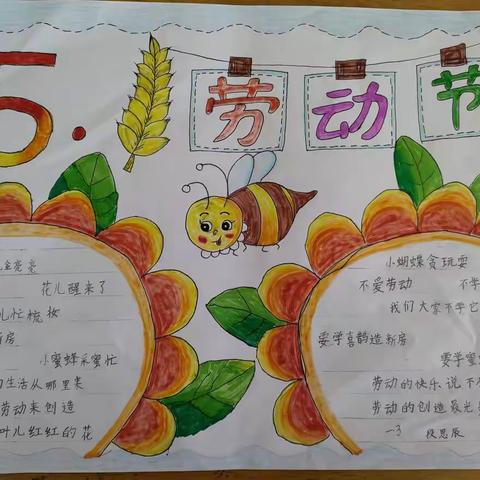 5.
劳动节
金亮亮
花儿醒来了
儿忙梳妆
房
小蜜蜂采蜜忙
生活从哪里来
劳动来创造
叶儿红红的花
小蝴蝶贪玩耍
不爱劳动 不学
我们大家不学它
要学喜鹊造新房
要学蜜
劳动的快乐说不
劳动的创造最光
一3 段思辰